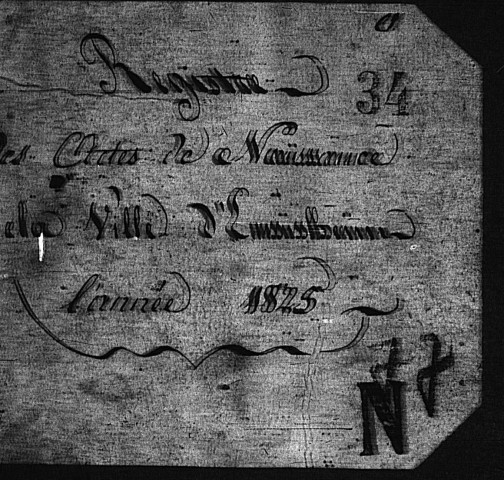 Registre
34
des Actes de Naissance
de la Ville d'
l'année 1825
N 7